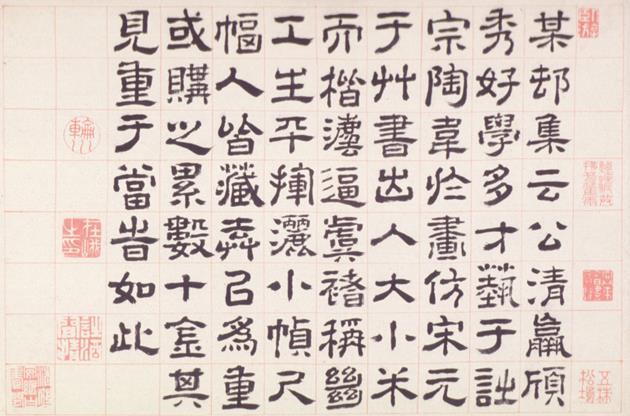 某邨集云公清羸頎
秀好學多才蓺于詩
宗陶韋於畫仿宋元
于艸書出入大小米
而楷灋逼虞褚稱𢇍
工生平揮灑小幀尺
幅人皆藏弆㠯為重
或購之累數十金其
見重于當旹如此